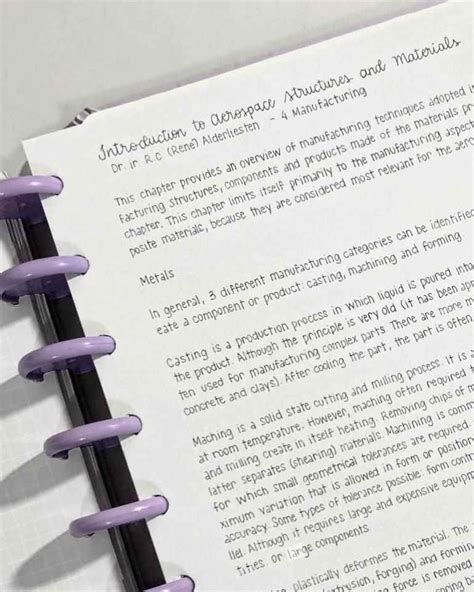 Introduction to Aerospace Structures and Materials
Dr. ir. R.C. (René) Alderliesten - 4 Manufacturing
This chapter provides an overview of manufacturing techniques adopted i
facturing structures, components and products made of the materials p
chapter. This chapter limits itself primarily to the manufacturing aspect
posite materials, because they are considered most relevant for the aero
Metals
In general, 3 different manufacturing categories can be identifi
eate a component or product: casting, machining and forming.
Casting is a production process in which liquid is poured into
the product. Although the principle is very old (it has been app
ten used for manufacturing complex parts. There are more
concrete and clays). After cooling the part, the part is often
Maching is a solid state cutting and milling process. It is a
at room temperature. However, maching often required t
and milling create in itself heating. Removing chips of
latter separates (shearing) materials. Machining is com
for which small geometrical tolerances are required.
ximum variation that is allowed in form or position
accuracy. Some types of tolerance possible: form contr
llel. Although it requires large and expensive equipm
tities. or large components.
plastically deformes the material. Thi
(extrusion, forging) and formin
force is removed